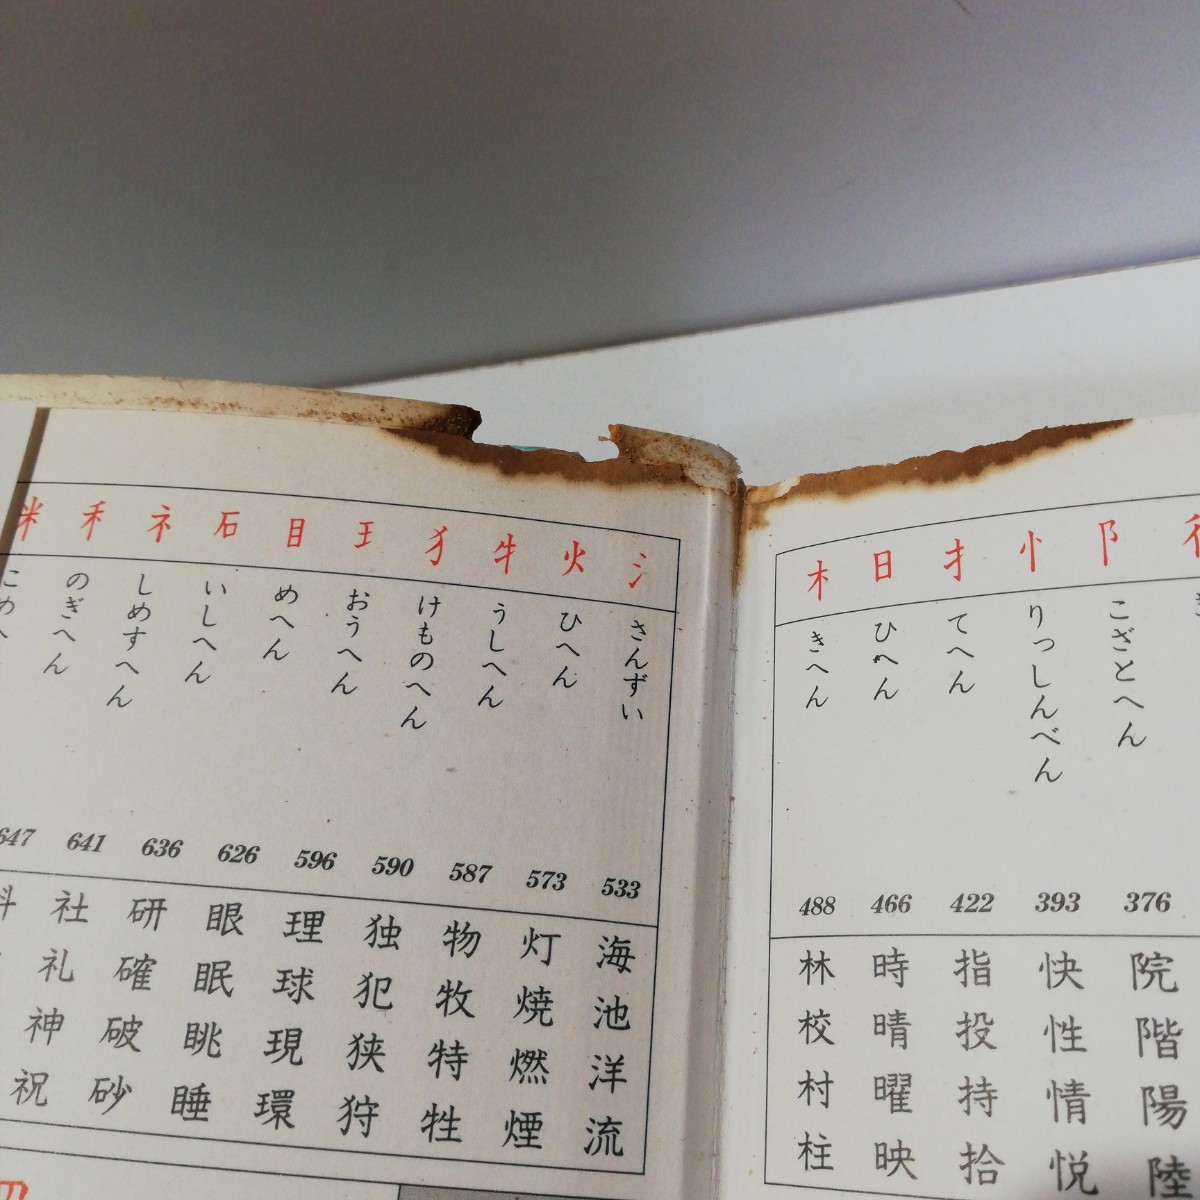 阝
こざとへん
376
院階陽陸
忄
りっしんべん
393
快性情悦
扌
てへん
422
指投持拾
日
ひへん
466
時晴曜映
木
きへん
488
林校村柱
氵
さんずい
533
海池洋流
火
ひへん
573
灯焼燃煙
牛
うしへん
587
物牧特牲
犭
けものへん
590
独犯狭狩
王
おうへん
596
理球現環
目
めへん
626
眼眠眺睡
石
いしへん
636
研確破砂
礻
しめすへん
641
社礼神祝
禾
のぎへん
647
米